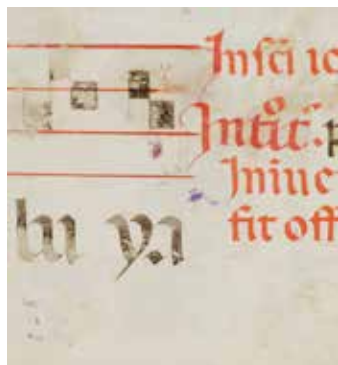 In scī io
Intīt. p
In iue
fit off
lu ya